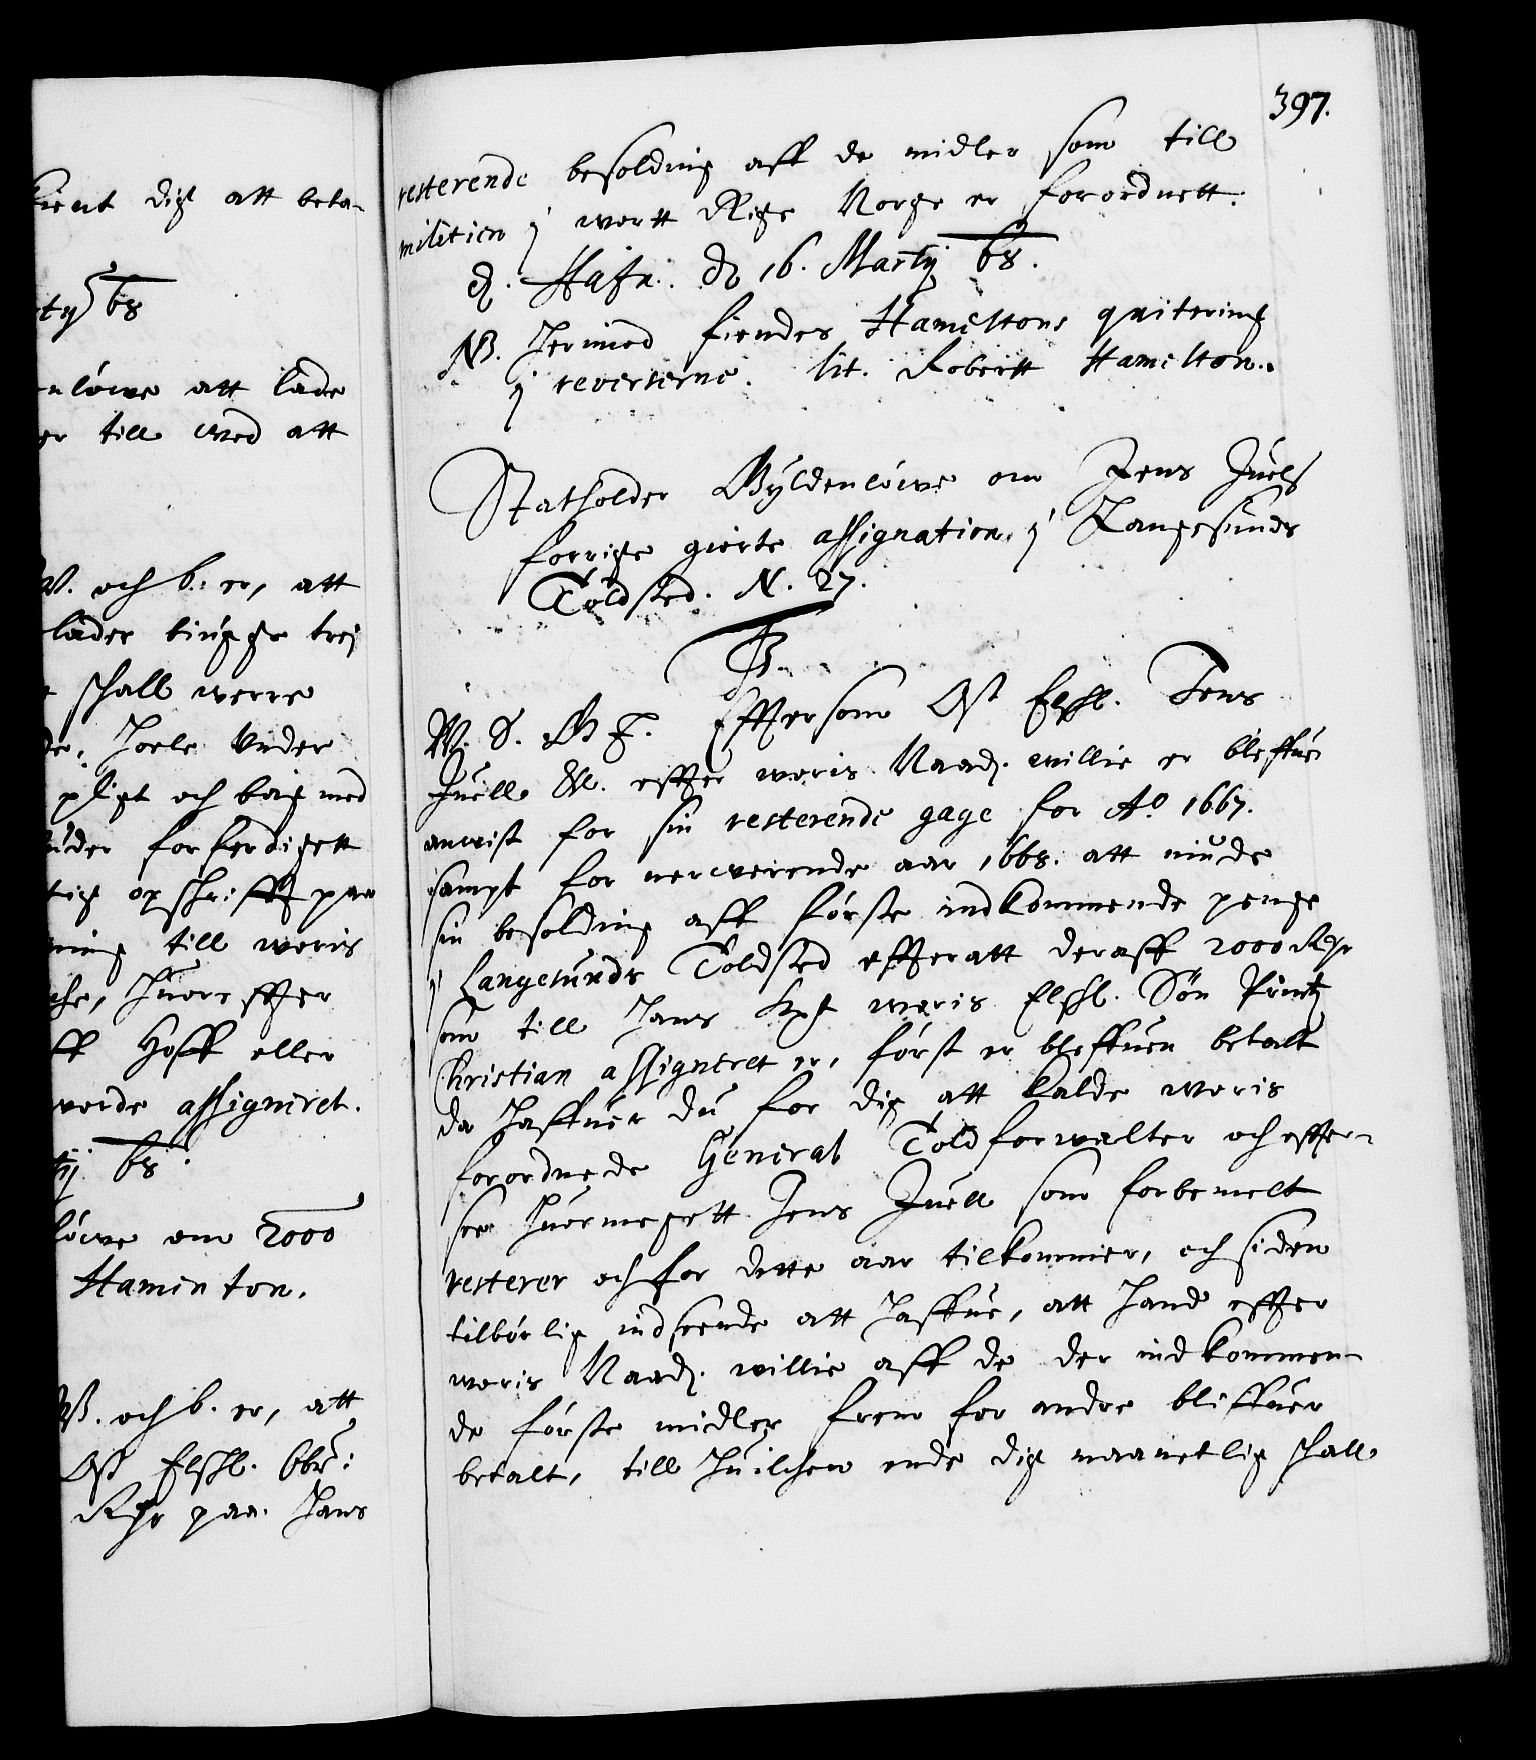 kient dig att beta-
ty 68
nlöwe att lade
er till wed att
W. och b. er, att
lader bügge trej
schall werre
de. Hele under
pligt och bag med
uder forferdigett
tig opschrifft paa
ning till woris
che, huoreffter
ff Hoff eller
worde assigneret.
tij 68.
löwe om 2000
Haminton.
W. och b. er, att
Oss Elschl. Obr:
Rdr paa hans
397.
resterende besolding aff de midler som till
militien j wortt Rige Norge er forordnett.
d. Hafn. d. 16. Martij 68.
NB. Hermed fiendes Hameltons quitering
j reverserne. lit. Robertt Hamelton.
Statholder Gyldenlöwe om Jens Juels
forrige giorte assignation j Langesunds
Toldsted. N. 27.
F. 3.
W. S. G T. Effttersom Oss Elschl. Jens
Juell etc. effter woris Naad. willie er bleffuen
anwist for sin resterende gage for Ao. 1667.
sampt for nerwerende aar 1668. att niude
sin besolding aff förste indkommende penge
j Langesunds Toldsted effteratt deraff 2000 Rdr
som till hans Kgl. woris Elschl. Sön Printz
Christian assigneret er, först er bleffuen betalt
da haffuer du for dig att kalde woris
forordnede General Toldforwalter och effter-
see huormegett Jens Juell som forbemelt
resterer och for dette aar tilkommer, och siden
tilbörlig indseende att haffue, att hand effter
woris Naad. willie aff de der indkommen-
de förste midler frem for andre bliffuer
betalt, till huilchen ende dig maanetlig schall